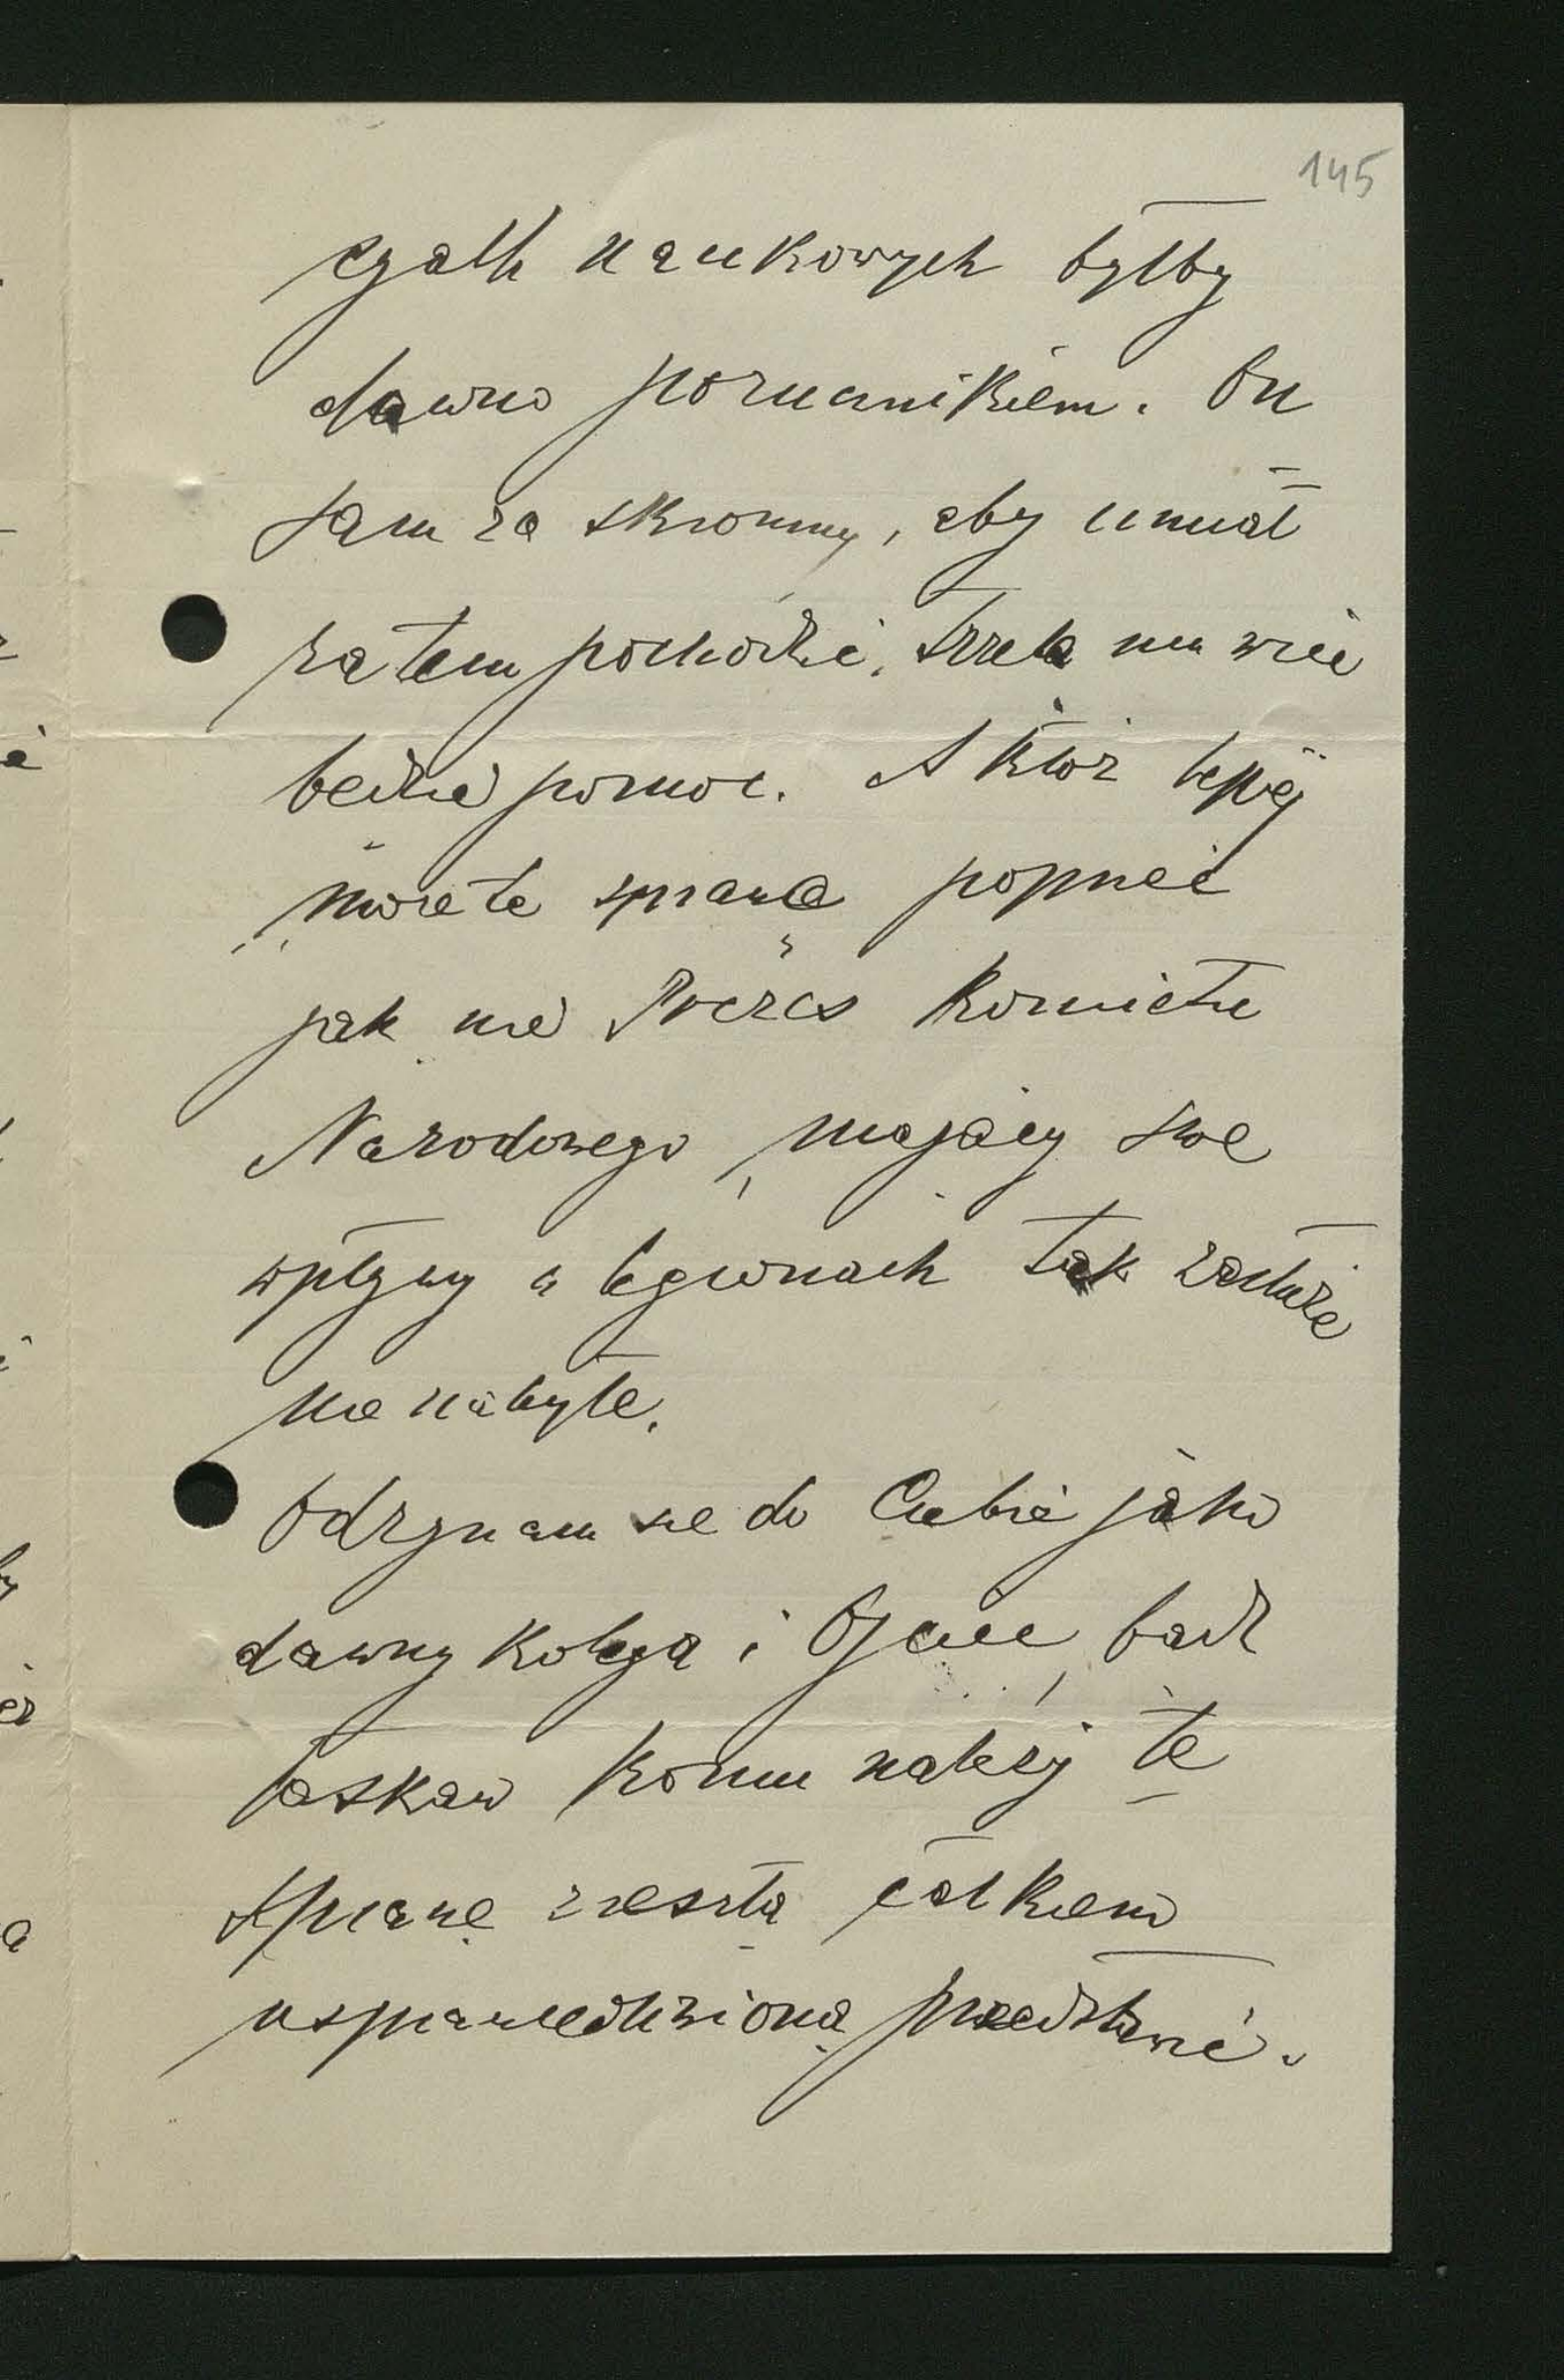 145
naukowych byłby
dawno porucznikiem. On
sam za skromny, aby umiał
za tem pochodzić, trzeba mu więc
będzie pomoc. A któż lepiej
może tę sprawę poprzeć
jak nie Prezes Komitetu
Narodowego, mający swe
wpływy w legionach tak zasłuże
nie nabyte.
Odzywam się do Ciebie jako
dawny kolega i Ojciec, bądź
łaskaw komu należy tę
sprawę zresztą całkiem
usprawiedliwioną przedstawić.